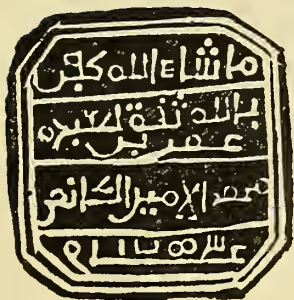 ماشاء الله كفى
بالله ثقة لعبده
عمر بن
محمد الامير الكانمى